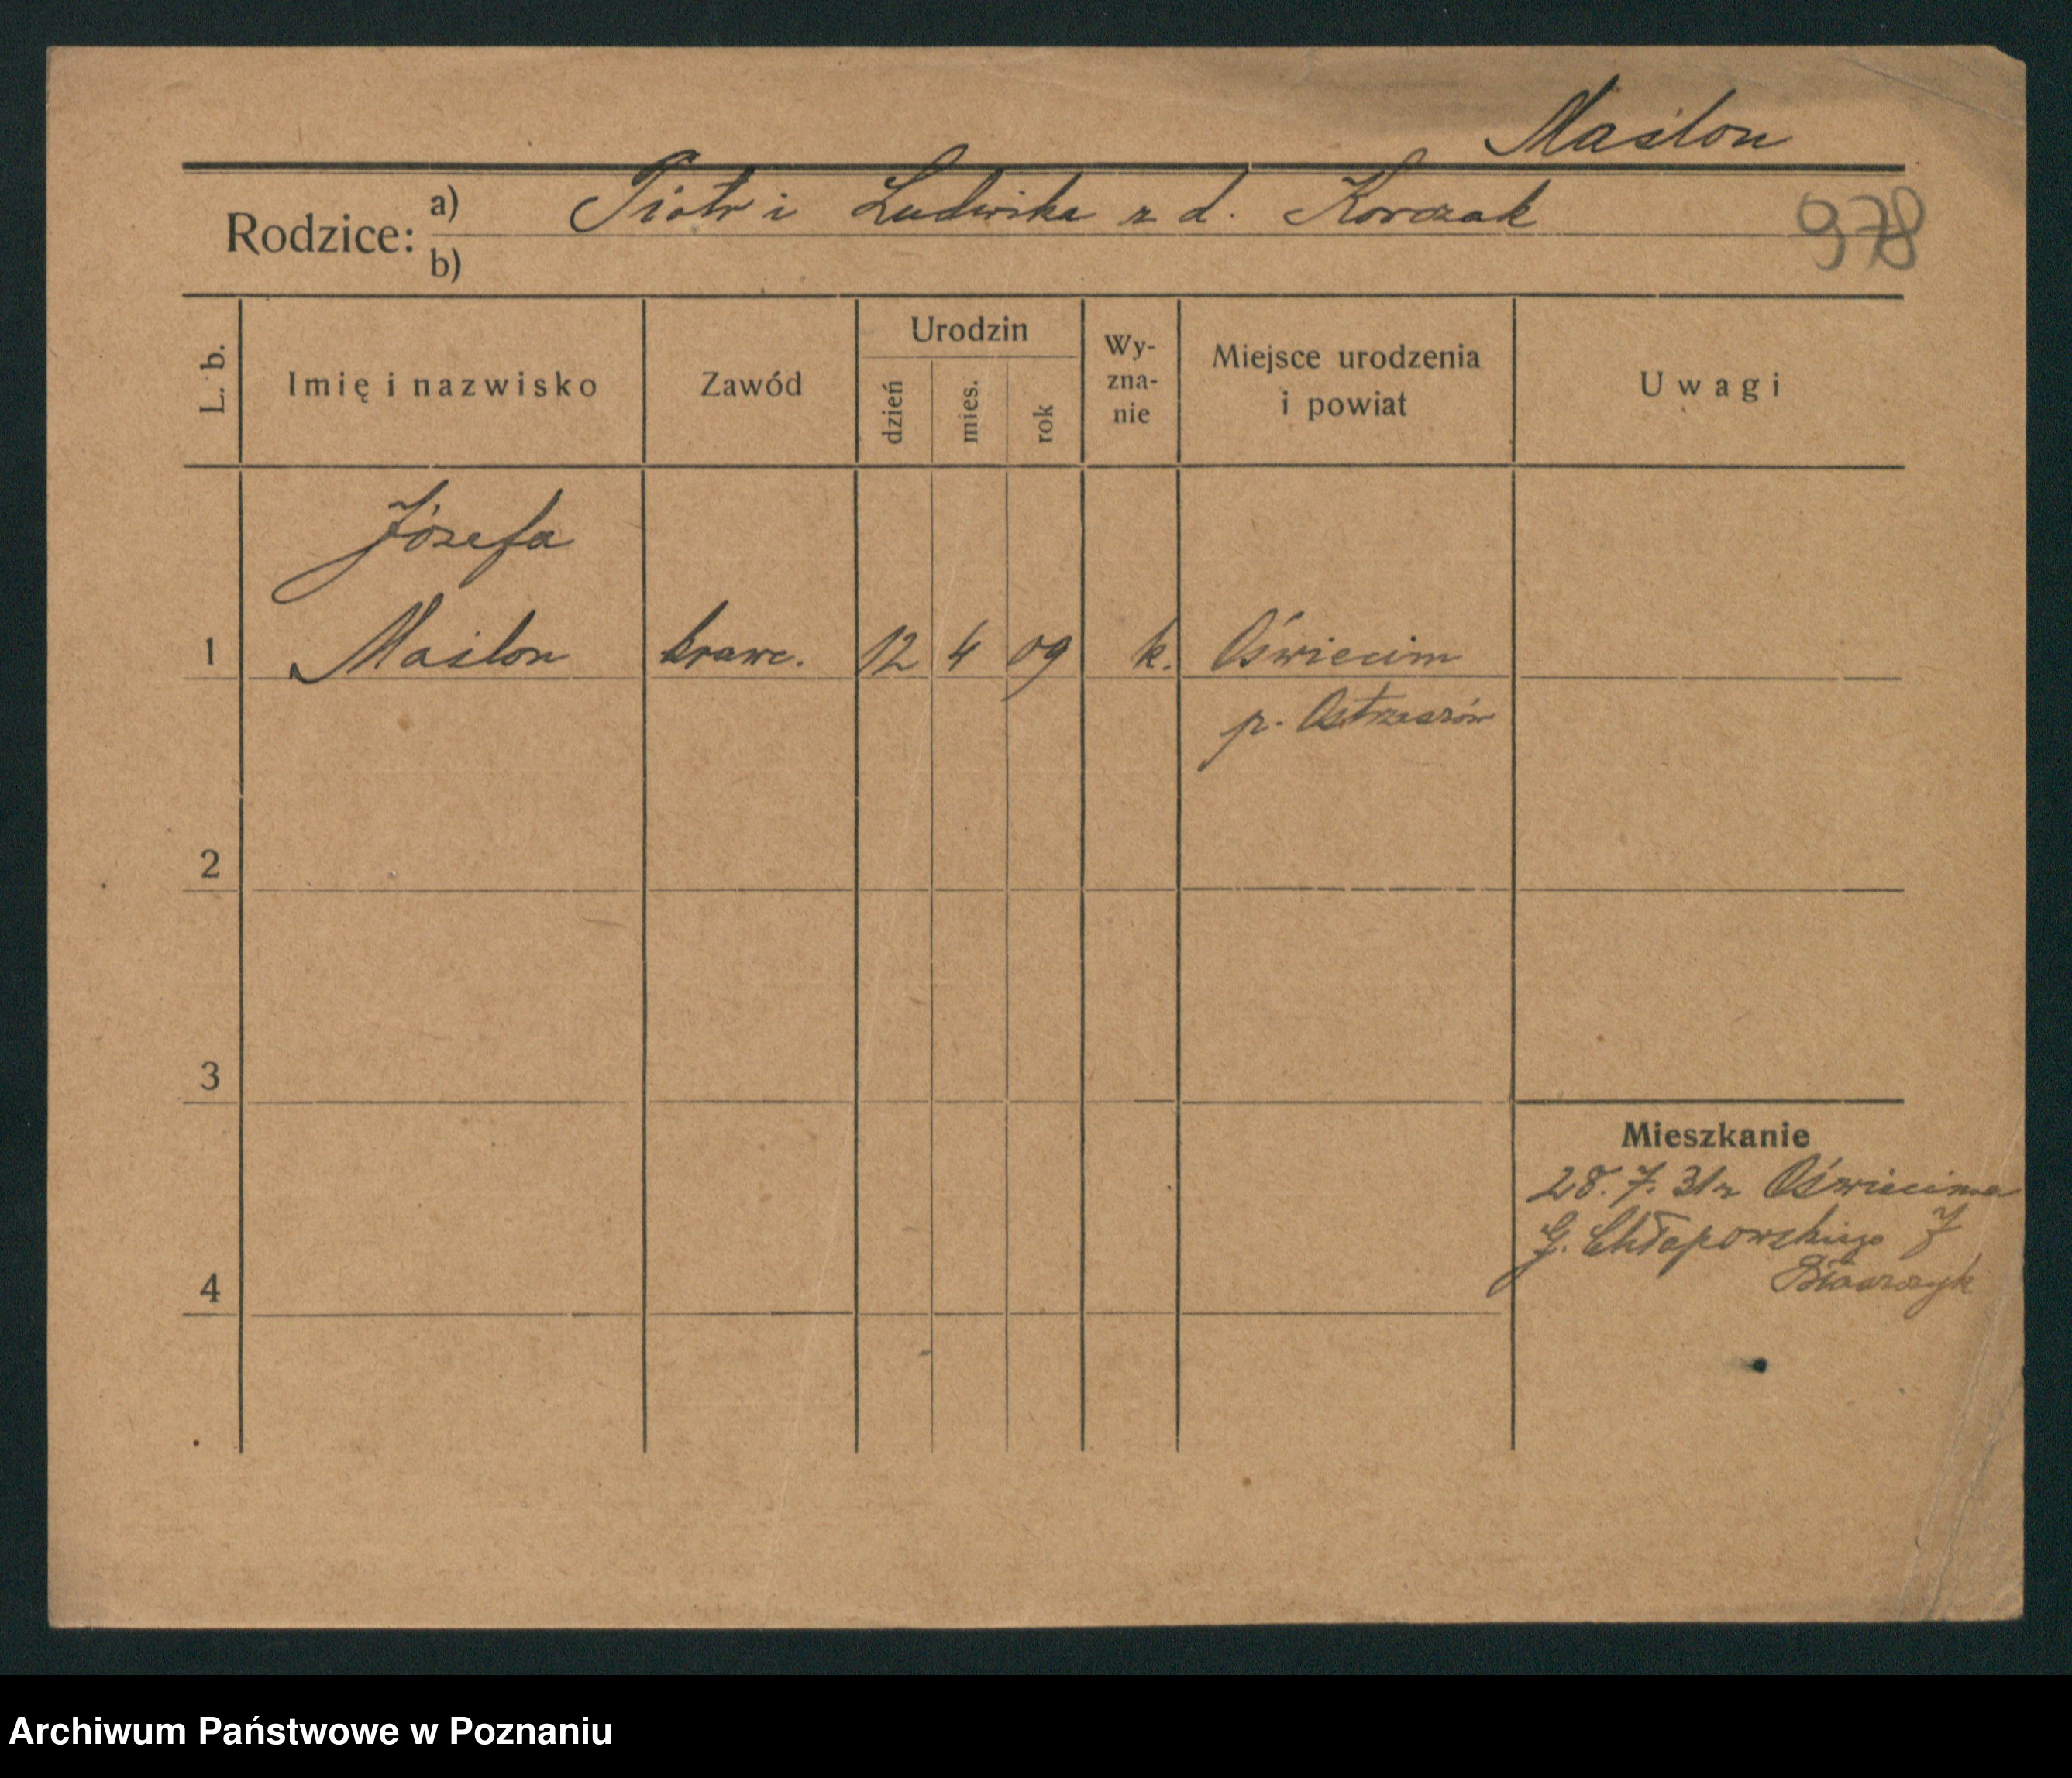 Maślon
Rodzice: a) Piotr i Ludwika z d. Korczak
978
b)
L. b. Imię i nazwisko Zawód Urodzin dzień mies. rok Wy-zna-nie Miejsce urodzenia i powiat Uwagi
Józefa
1 Maślon krawc. 12 4 09 k. Oświecim
p. Ostrzeszów
2
3
Mieszkanie
28. 7. 31 z Oświecima
G. Chłapowskiego 7
4
Archiwum Państwowe w Poznaniu